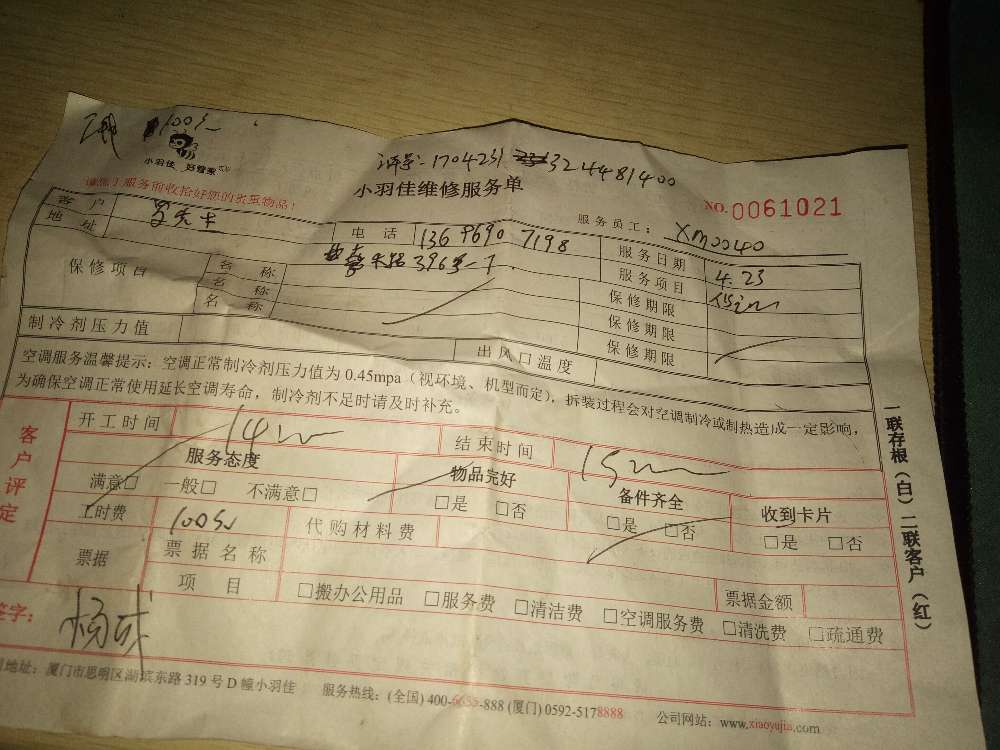 100元
小羽佳 好管家
1704231 324481400
小羽佳维修服务单
NO. 0061021
请您于服务前收拾好您的贵重物品!
服务员工: XM0040
客户 电话 136 9690 7198 服务日期 4.23
地址 396号 服务项目
保修项目 名称 保修期限
名称 保修期限
名称 保修期限
制冷剂压力值 出风口温度
空调服务温馨提示: 空调正常制冷剂压力值为 0.45mpa (视环境、机型而定), 拆装过程会对空调制冷或制热造成一定影响,
为确保空调正常使用延长空调寿命, 制冷剂不足时请及时补充。
客户评定
开工时间 14 结束时间 15
服务态度 物品完好 备件齐全 收到卡片
满意□ 一般□ 不满意□ □是 □否 □是 □否 □是 □否
工时费 100元 代购材料费
票据 票据名称 票据金额
项目 □搬办公用品 □服务费 □清洁费 □空调服务费 □清洗费 □疏通费
签字:
地址: 厦门市思明区湖滨东路 319 号 D 幢小羽佳 服务热线: (全国) 400-6655-888 (厦门) 0592-5178888 公司网站: www.xiaoyujia.com
一联存根(白) 二联客户(红)